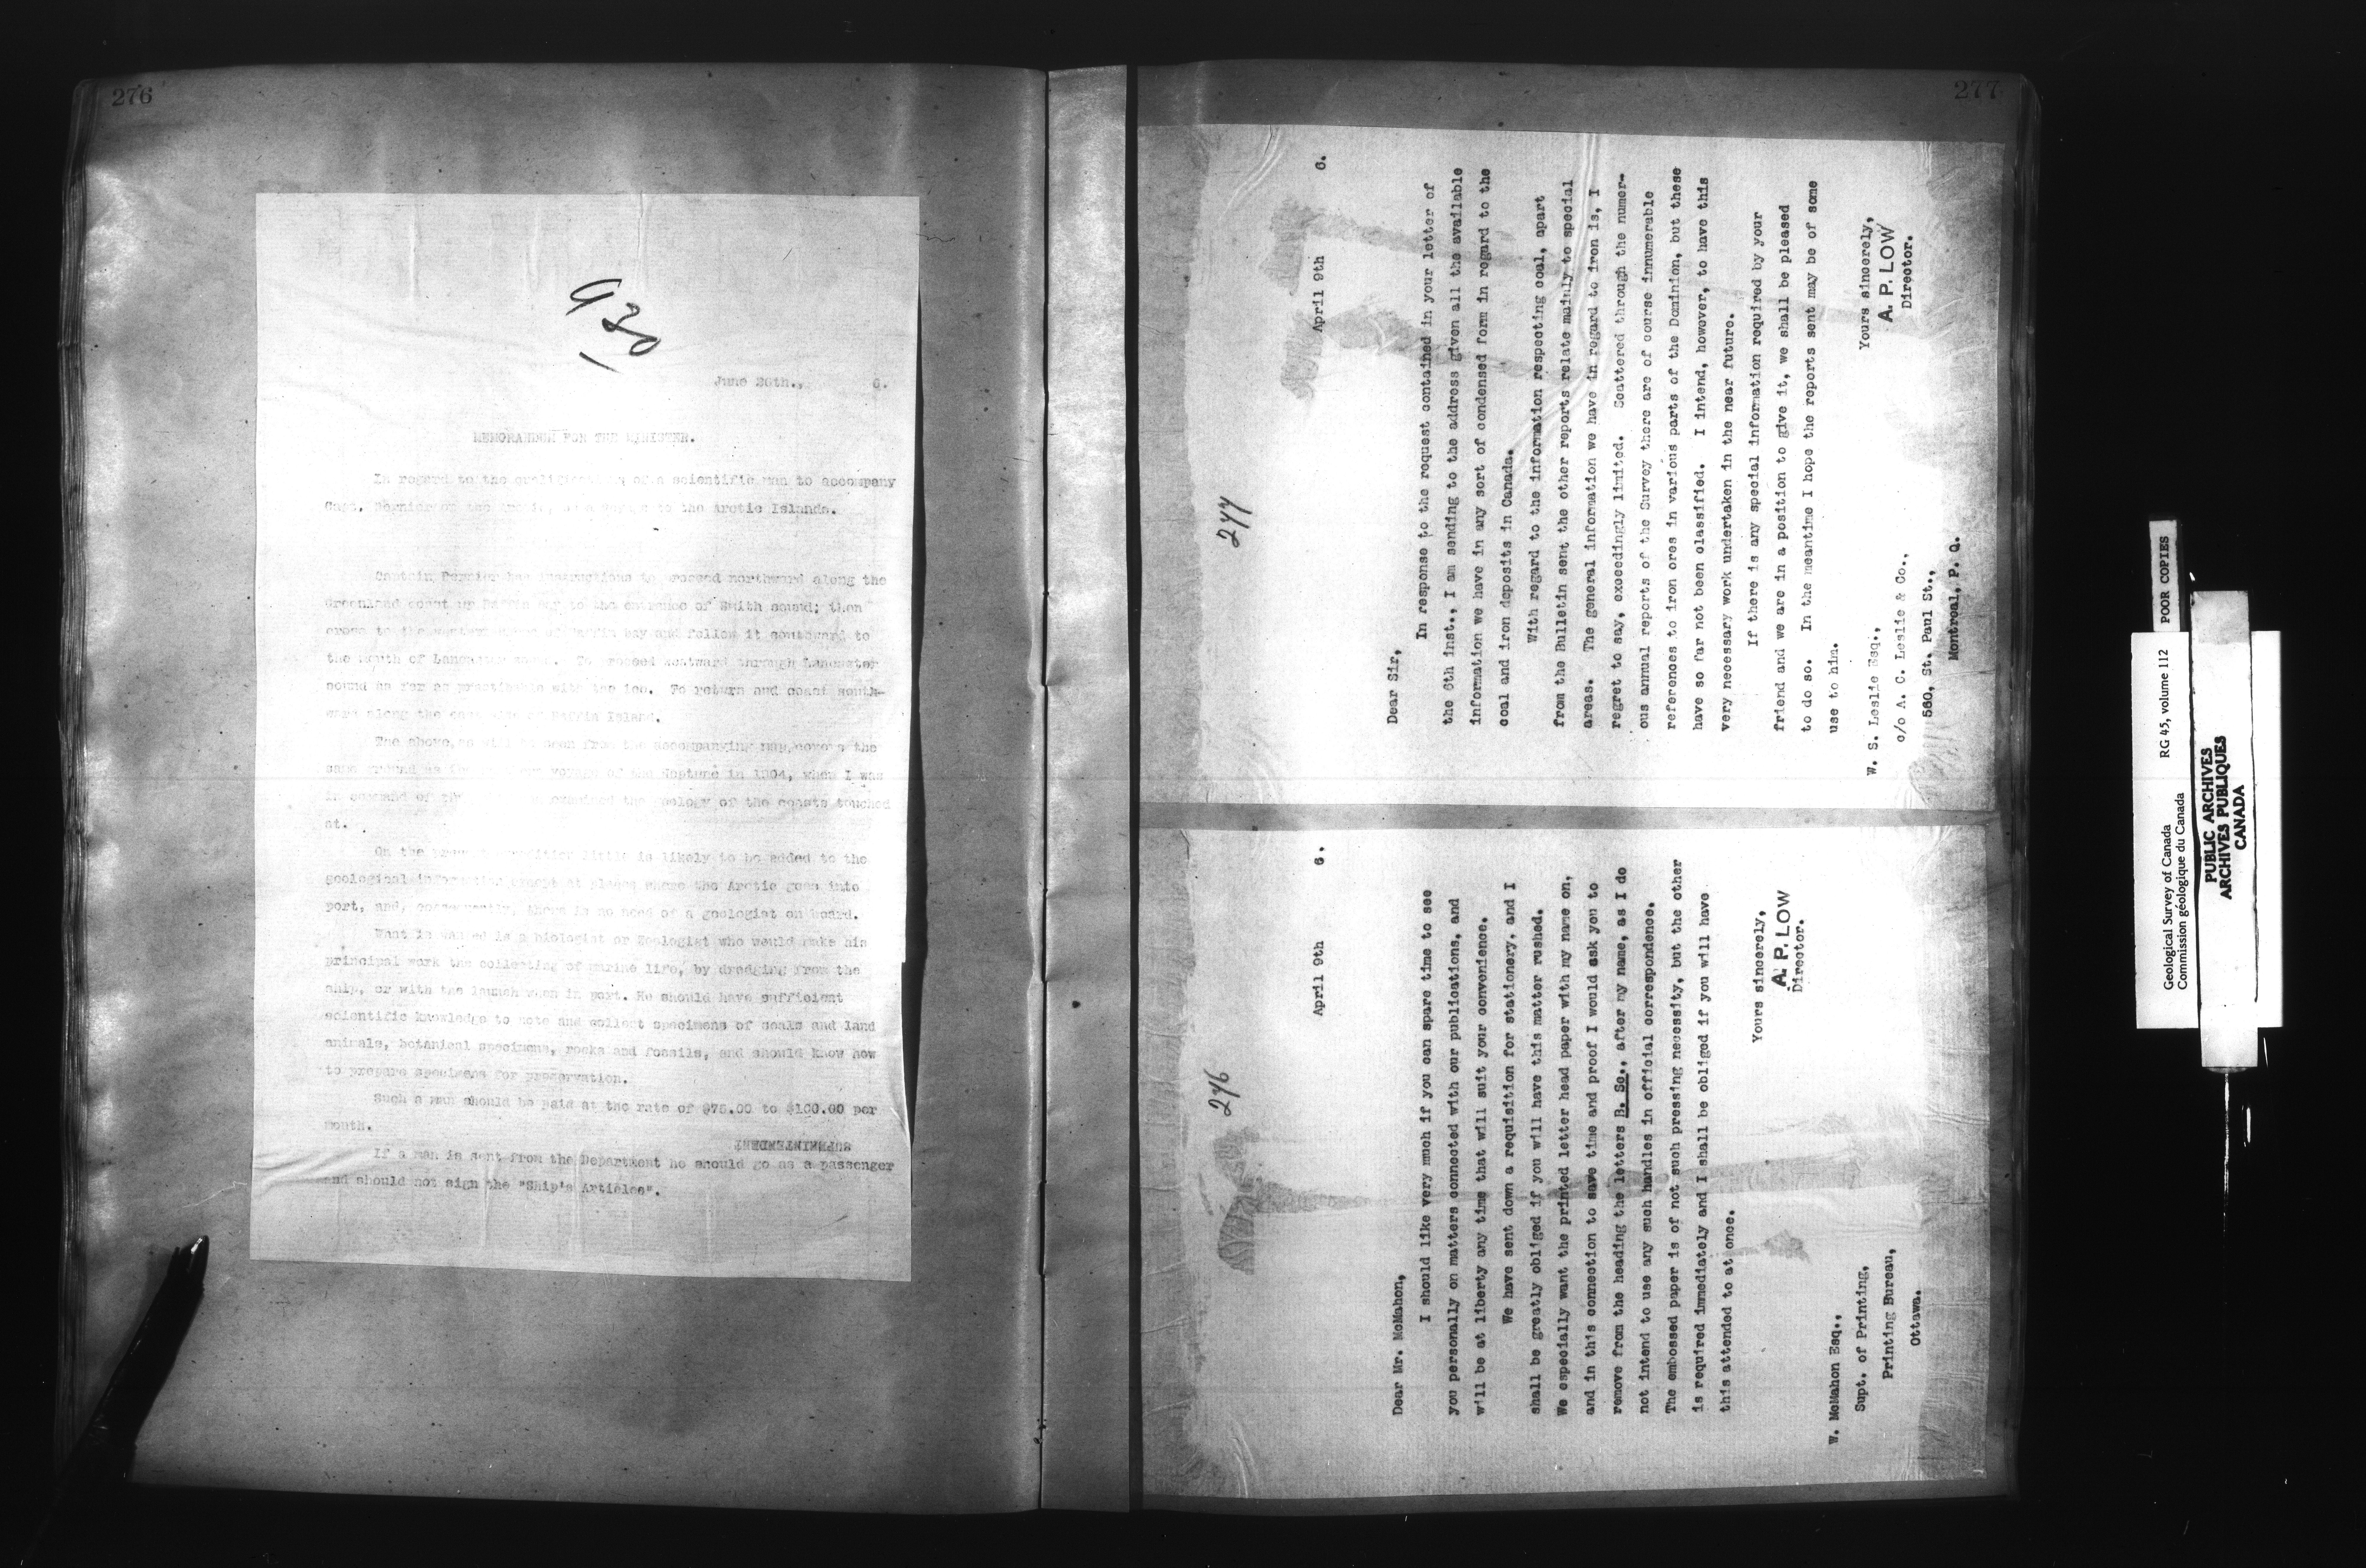 276
June 26th., 6.
MEMORANDUM FOR THE MINISTER.
In regard to the of a scientific man to accompany
Capt. Bernier on the to the Arctic Islands.
Captain Bernier has instructions to proceed northward along the
Greenland coast of Baffin bay to the entrance of Smith sound; then
cross to the western of Baffin bay and follow it southward to
the mouth of Lancaster sound. To proceed westward through Lancaster
sound as far as practicable with the ice. To return and coast south-
ward along the east side of Baffin Island.
The above, as will be seen from the accompanying map, covers the
same ground as the voyage of the Neptune in 1904, when I was
in command of the examined the geology of the coasts touched
at.
On the present expedition little is likely to be added to the
geological information except at places where the Arctic goes into
port, and, consequently, there is no need of a geologist on board.
What is wanted is a biologist or Zoologist who would make his
principal work the collecting of marine life, by dredging from the
ship, or with the launch when in port. He should have sufficient
scientific knowledge to note and collect specimens of seals and land
animals, botanical specimens, rocks and fossils, and should know how
to prepare specimens for preservation.
Such a man should be paid at the rate of $75.00 to $100.00 per
month.
SUPERINTENDENT
If a man is sent from the Department he should go as a passenger
and should not sign the "Ship's Articles".
277
277
April 9th 6.
Dear Sir,
In response to the request contained in your letter of
the 6th inst., I am sending to the address given all the available
information we have in any sort of condensed form in regard to the
coal and iron deposits in Canada.
With regard to the information respecting coal, apart
from the Bulletin sent the other reports relate mainly to special
areas. The general information we have in regard to iron is, I
regret to say, exceedingly limited. Scattered through the numer-
ous annual reports of the Survey there are of course innumerable
references to iron ores in various parts of the Dominion, but these
have so far not been classified. I intend, however, to have this
very necessary work undertaken in the near future.
If there is any special information required by your
friend and we are in a position to give it, we shall be pleased
to do so. In the meantime I hope the reports sent may be of some
use to him.
Yours sincerely,
A. P. LOW
Director.
W. S. Leslie Esq.,
c/o A. C. Leslie & Co.,
560, St. Paul St.,
Montreal, P. Q.
276
April 9th 6.
Dear Mr. McMahon,
I should like very much if you can spare time to see
you personally on matters connected with our publications, and
will be at liberty any time that will suit your convenience.
We have sent down a requisition for stationery, and I
shall be greatly obliged if you will have this matter rushed.
We especially want the printed letter head paper with my name on,
and in this connection to save time and proof I would ask you to
remove from the heading the letters B. Sc., after my name, as I do
not intend to use any such handles in official correspondence.
The embossed paper is of not such pressing necessity, but the other
is required immediately and I shall be obliged if you will have
this attended to at once.
Yours sincerely,
A. P. LOW
Director.
W. McMahon Esq.,
Supt. of Printing,
Printing Bureau,
Ottawa.
Geological Survey of Canada RG 45, volume 112 POOR COPIES
Commission géologique du Canada
PUBLIC ARCHIVES
ARCHIVES PUBLIQUES
CANADA